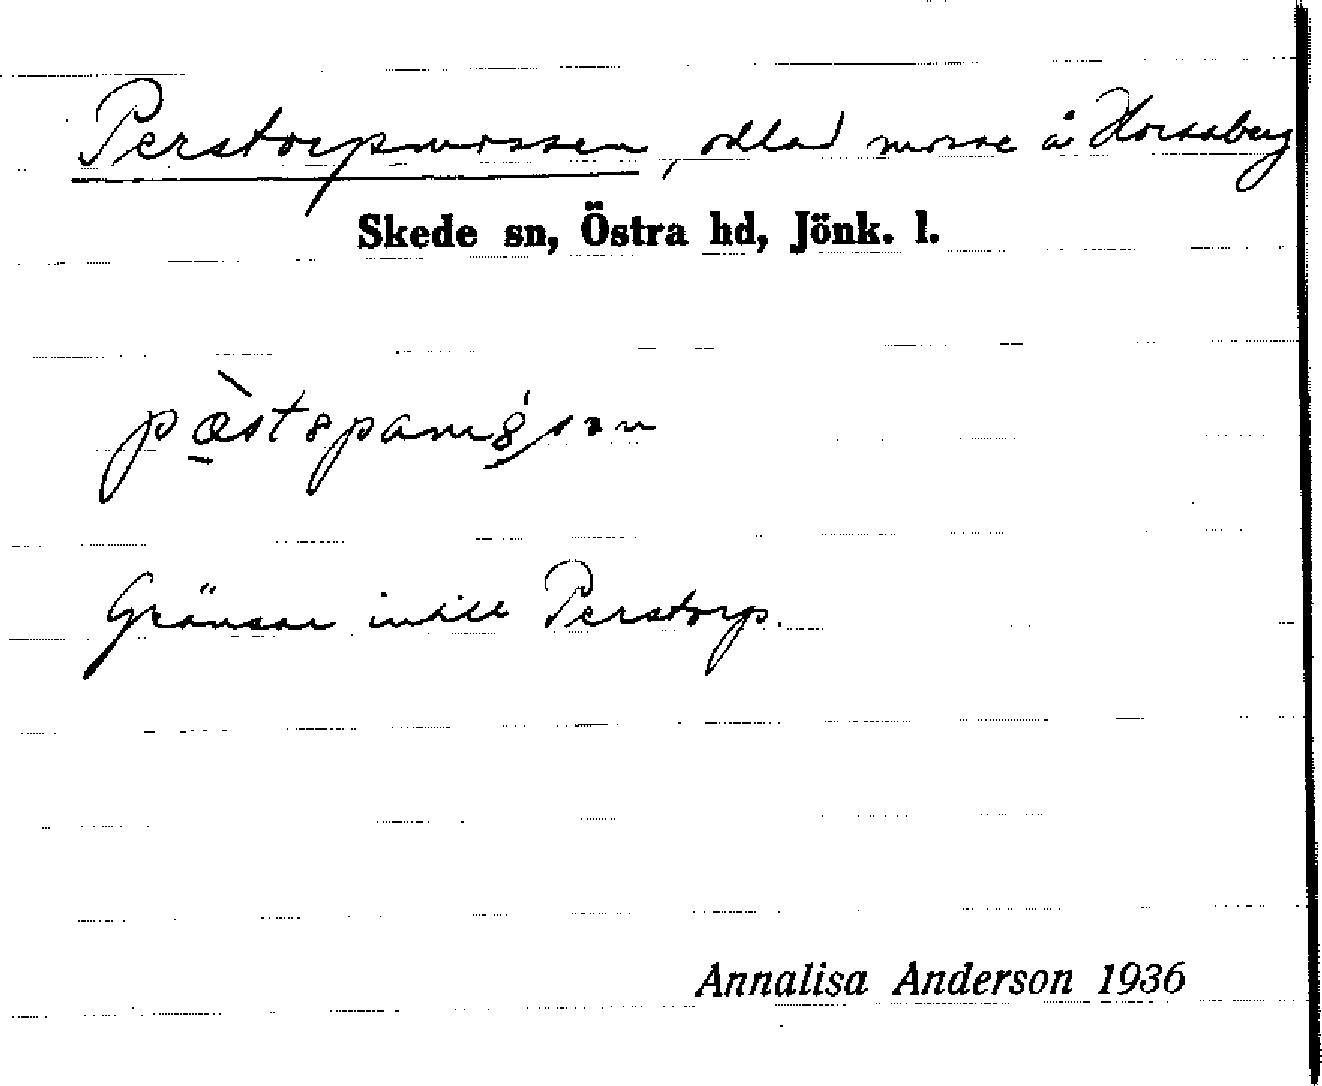 Perstorpmossen, odlad mosse å Horssaberg
Skede sn, Östra hd, Jönk. l.
Gränsar intill Perstorp.
Annalisa Anderson 1936